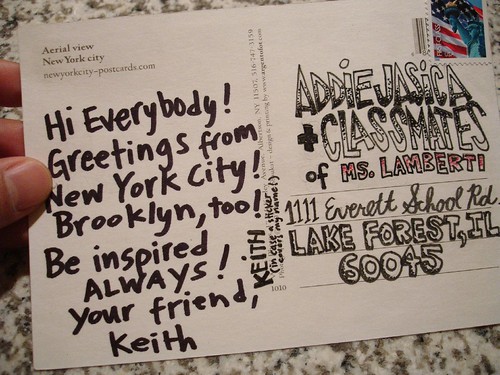 Aerial view
New York city
newyorkcity-postcards.com
Hi Everybody!
Greetings from
New York City!
Brooklyn, too!
Be inspired
ALWAYS!
your friend,
Keith
KEITH
(in case a sticker
covers my name!)
1010
ADDIE JASICA
+ CLASSMATES
of MS. LAMBERTI
1111 Everett School Rd.
LAKE FOREST, IL
60045